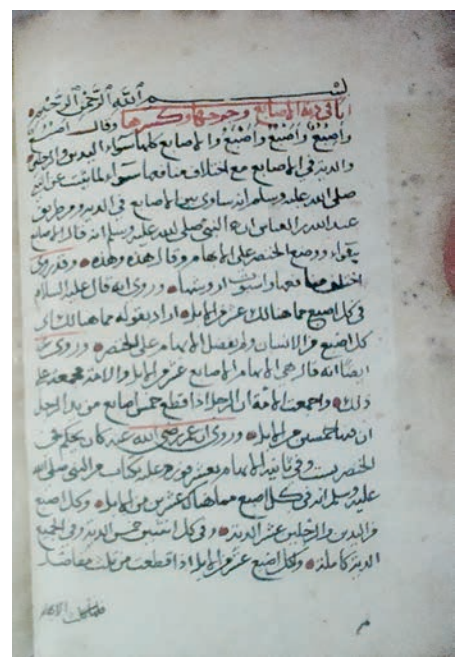 بسم الله الرحمن الرحيم
باب في دية الاصابع وجروحها وكسرها وقال
واصبع واصبع واصبع والاصابع كلها سواء اليدين والرجلين
والدية في الاصابع مع اختلاف منافعها سواء لما ثبت عن النبي
صلى الله عليه وسلم انه ساوى بين الاصابع في الدية ومن طريق
عبد الله بن العباس ان النبي صلى الله عليه وسلم انه قال الاصابع
سواء ووضع الخنصر على الابهام وقال هذه وهذه وقد روي
اختلف منافعها واستوت اروشها وروي انه قال عليه السلام
في كل اصبع مما هنالك عشر من الابل اراد بقوله مما هنالك اي
كل اصبع من الانسان ولم يفضل الابهام على الخنصر وروي
ايضا انه قال في الابهام الاصابع عشر من الابل والامة مجمعة على
ذلك واجمعت الامة ان الرجل اذا قطع خمس اصابع من يد الرجل
ان فيها خمسين من الابل وروي ان عمر رضي الله عنه كان يحكم في
الخنصر بست وفي الابهام بعشر فوجد كتاب من النبي صلى الله
عليه وسلم انه في كل اصبع مما هناك عشر من الابل وكل اصبع
من اليدين والرجلين عشر الدية وفي كل اثنتين خمس الدية وفي الجميع
الدية كاملة ولكل اصبع عشر من الابل اذا قطعت من ثلث مفاصل
الابهام